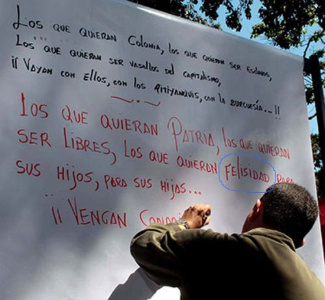 Los que quieran Colonia, los que quieran ser esclavos,
Los que quieran ser vasallos del capitalismo,
¡¡ Vayan con ellos, con los pitiyanquis, con la burguesía...!!
Los que quieran Patria, los que quieran
ser libres, los que quieran felisidad para
sus hijos, para sus hijas...
¡¡ Vengan Con